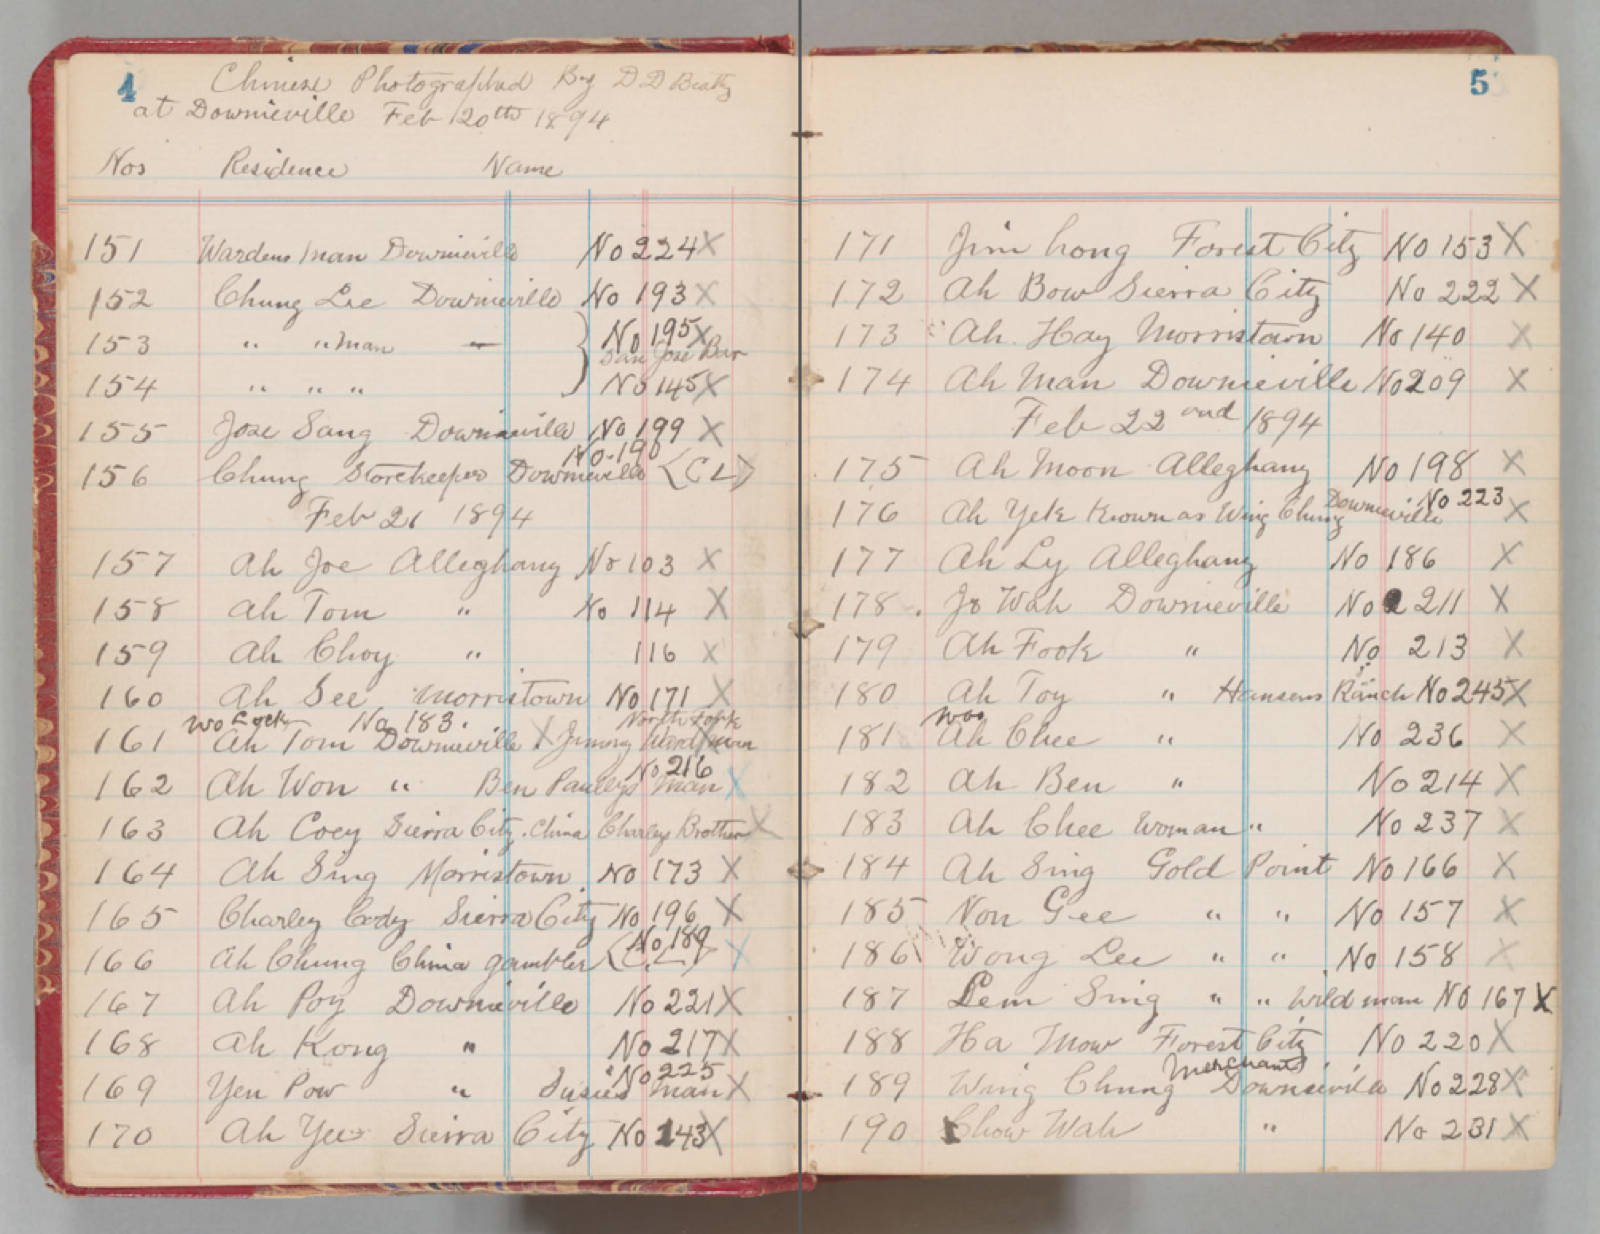 4
Chinese Photographed By D D Beatty
at Downieville Feb 20th 1894
Nos Residence Name
151 Wardens man Downieville No 224 X
152 Chung Lee Downieville No 193 X
153 " " man — No 195 X
San Jose Bar
154 " " " No 145 X
155 Jose Sang Downieville No 199 X
No. 190
156 Chung Storekeeper Downieville <CL>
Feb 21 1894
157 Ah Joe Alleghany No 103 X
158 Ah Tom " No 114 X
159 Ah Choy " 116 X
160 Ah See Morristown No 171 X
Wo Lock No 183. North Fork
161 Ah Tom Downieville X Jimmy man
No 216
162 Ah Won " Ben Pauleys man X
163 Ah Coey Sierra City. China Charleys Brother X
164 Ah Sing Morristown. No 173 X
165 Charley Cody Sierra City No 196 X
No 189
166 Ah Chung China gambler <C.L> X
167 Ah Poy Downieville No 221 X
168 Ah Kong " No 217 X
No 225
169 Yen Pow " Susie's man X
170 Ah Yee Sierra City No 143 X
5
171 Jim Long Forest City No 153 X
172 Ah Bow Sierra City No 222 X
173 Ah Hay Morristown No 140 X
174 Ah Man Downieville No 209 X
Feb 22 and 1894
175 Ah Moon Alleghany No 198 X
Downieville No 223
176 Ah Yek Known as Wing Chung X
177 Ah Ly Alleghany No 186 X
178. Jo Wah Downieville No 211 X
179 Ah Fook " No 213 X
180 Ah Toy " Hansens Ranch No 245 X
Woo
181 Ah Chee " No 236 X
182 Ah Ben " No 214 X
183 Ah Chee Woman " No 237 X
184 Ah Sing Gold Point No 166 X
185 Non Gee " " No 157 X
186 Wong Lee " " No 158 X
187 Lem Sing " " Wild man No 167 X
188 Ha Mow Forest City No 220 X
Merchant
189 Wing Chung Downieville No 228 X
190 Chow Wah " No 231 X